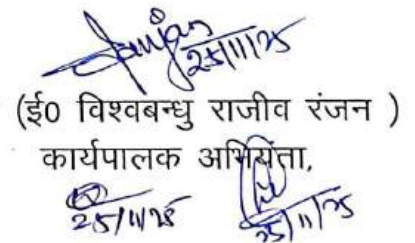 Ranjan
25/11/25
(ई0 विश्वबन्धु राजीव रंजन )
कार्यपालक अभियंता,
25/11/25 25/11/25